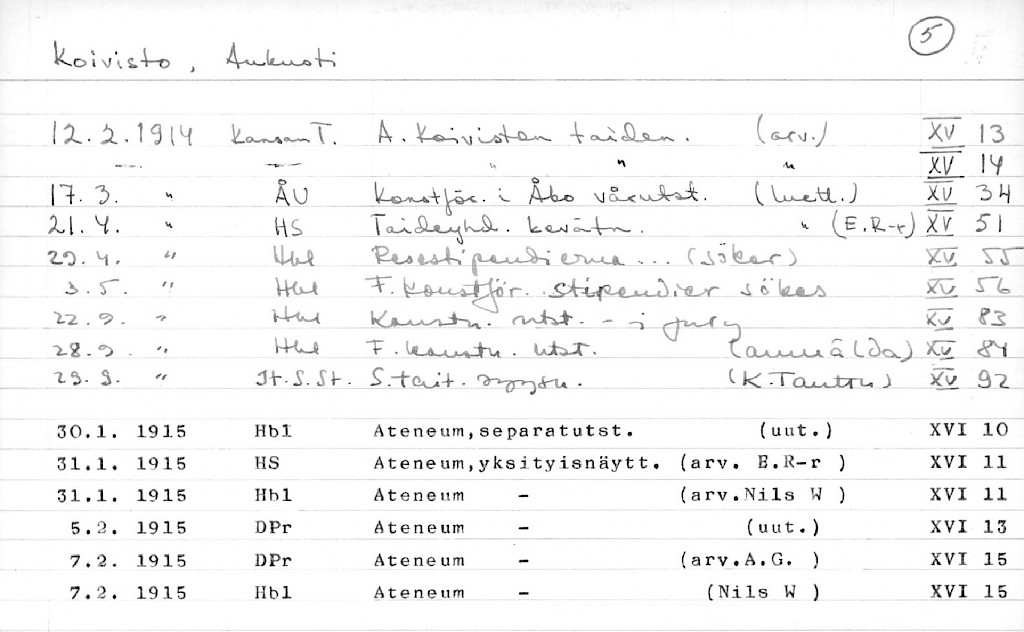 5
Koivisto, Aukusti
12.2.1914 Kansan T. A. Koiviston taiden. (arv.) XV 13
— — " " " XV 14
17.3. " ÅU Konstför. i Åbo vårutst. (luett.) XV 34
21.4. " HS Taideyhd. kevätn. " (E.R-r) XV 51
29.4. " Hbl Resestipendierna ... (söker) XV 55
3.5. " Hbl F. Konstför. stipendier sökes XV 56
22.9. " Hbl Konstn. utst. - i jury XV 83
28.9. " Hbl F. konstn. utst. (anmälda) XV 84
29.9. " St. S. St. S. tait. syysn. (K. Tanttu) XV 92
30.1. 1915 Hbl Ateneum,separatutst. (uut.) XVI 10
31.1. 1915 HS Ateneum,yksityisnäytt. (arv. E.R-r ) XVI 11
31.1. 1915 Hbl Ateneum - (arv.Nils W ) XVI 11
5.2. 1915 DPr Ateneum - (uut.) XVI 13
7.2. 1915 DPr Ateneum - (arv.A.G. ) XVI 15
7.2. 1915 Hbl Ateneum - (Nils W ) XVI 15